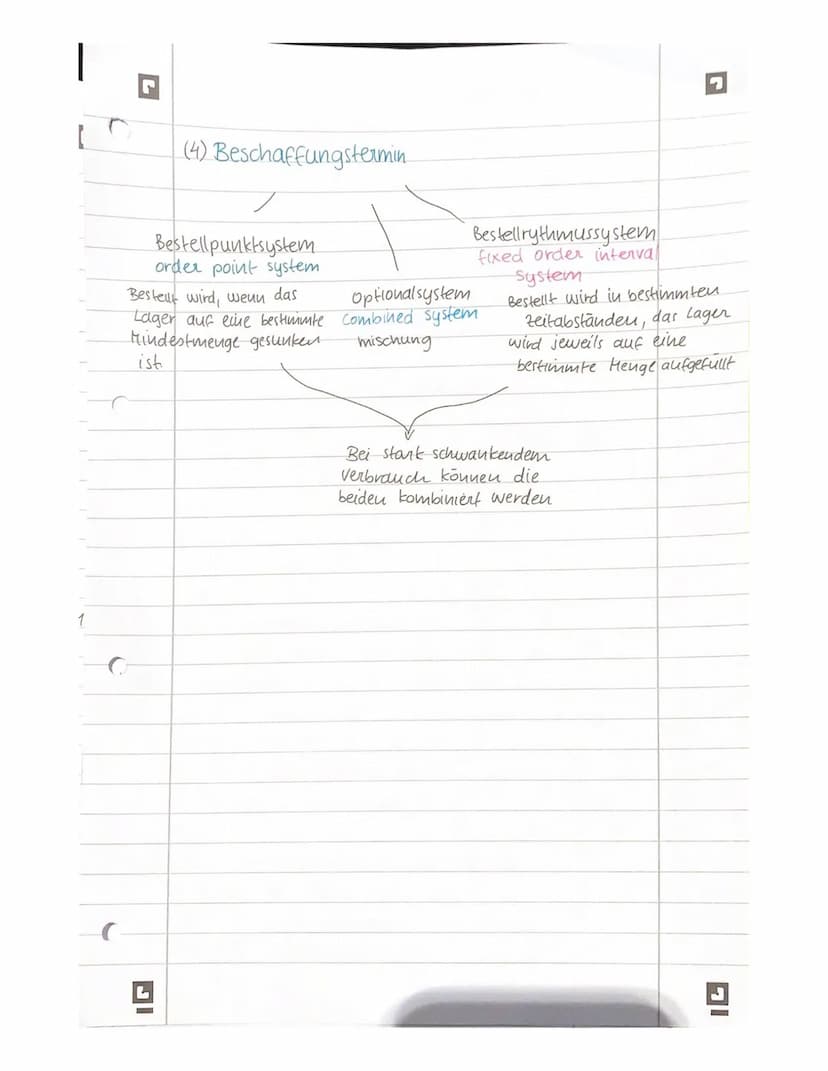 (4) Beschaffungstermin
Bestellpunktsystem
order point system
Bestellt wird, wenn das
Lager auf eine bestimmte
Mindestmenge gesunken
ist
Optionalsystem
Combined system
mischung
Bestellrythmussystem
fixed order interval
system
Bestellt wird in bestimmten
Zeitabständen, das Lager
wird jeweils auf eine
bestimmte Menge aufgefüllt
Bei stark schwankendem
Verbrauch können die
beiden kombiniert werden
1